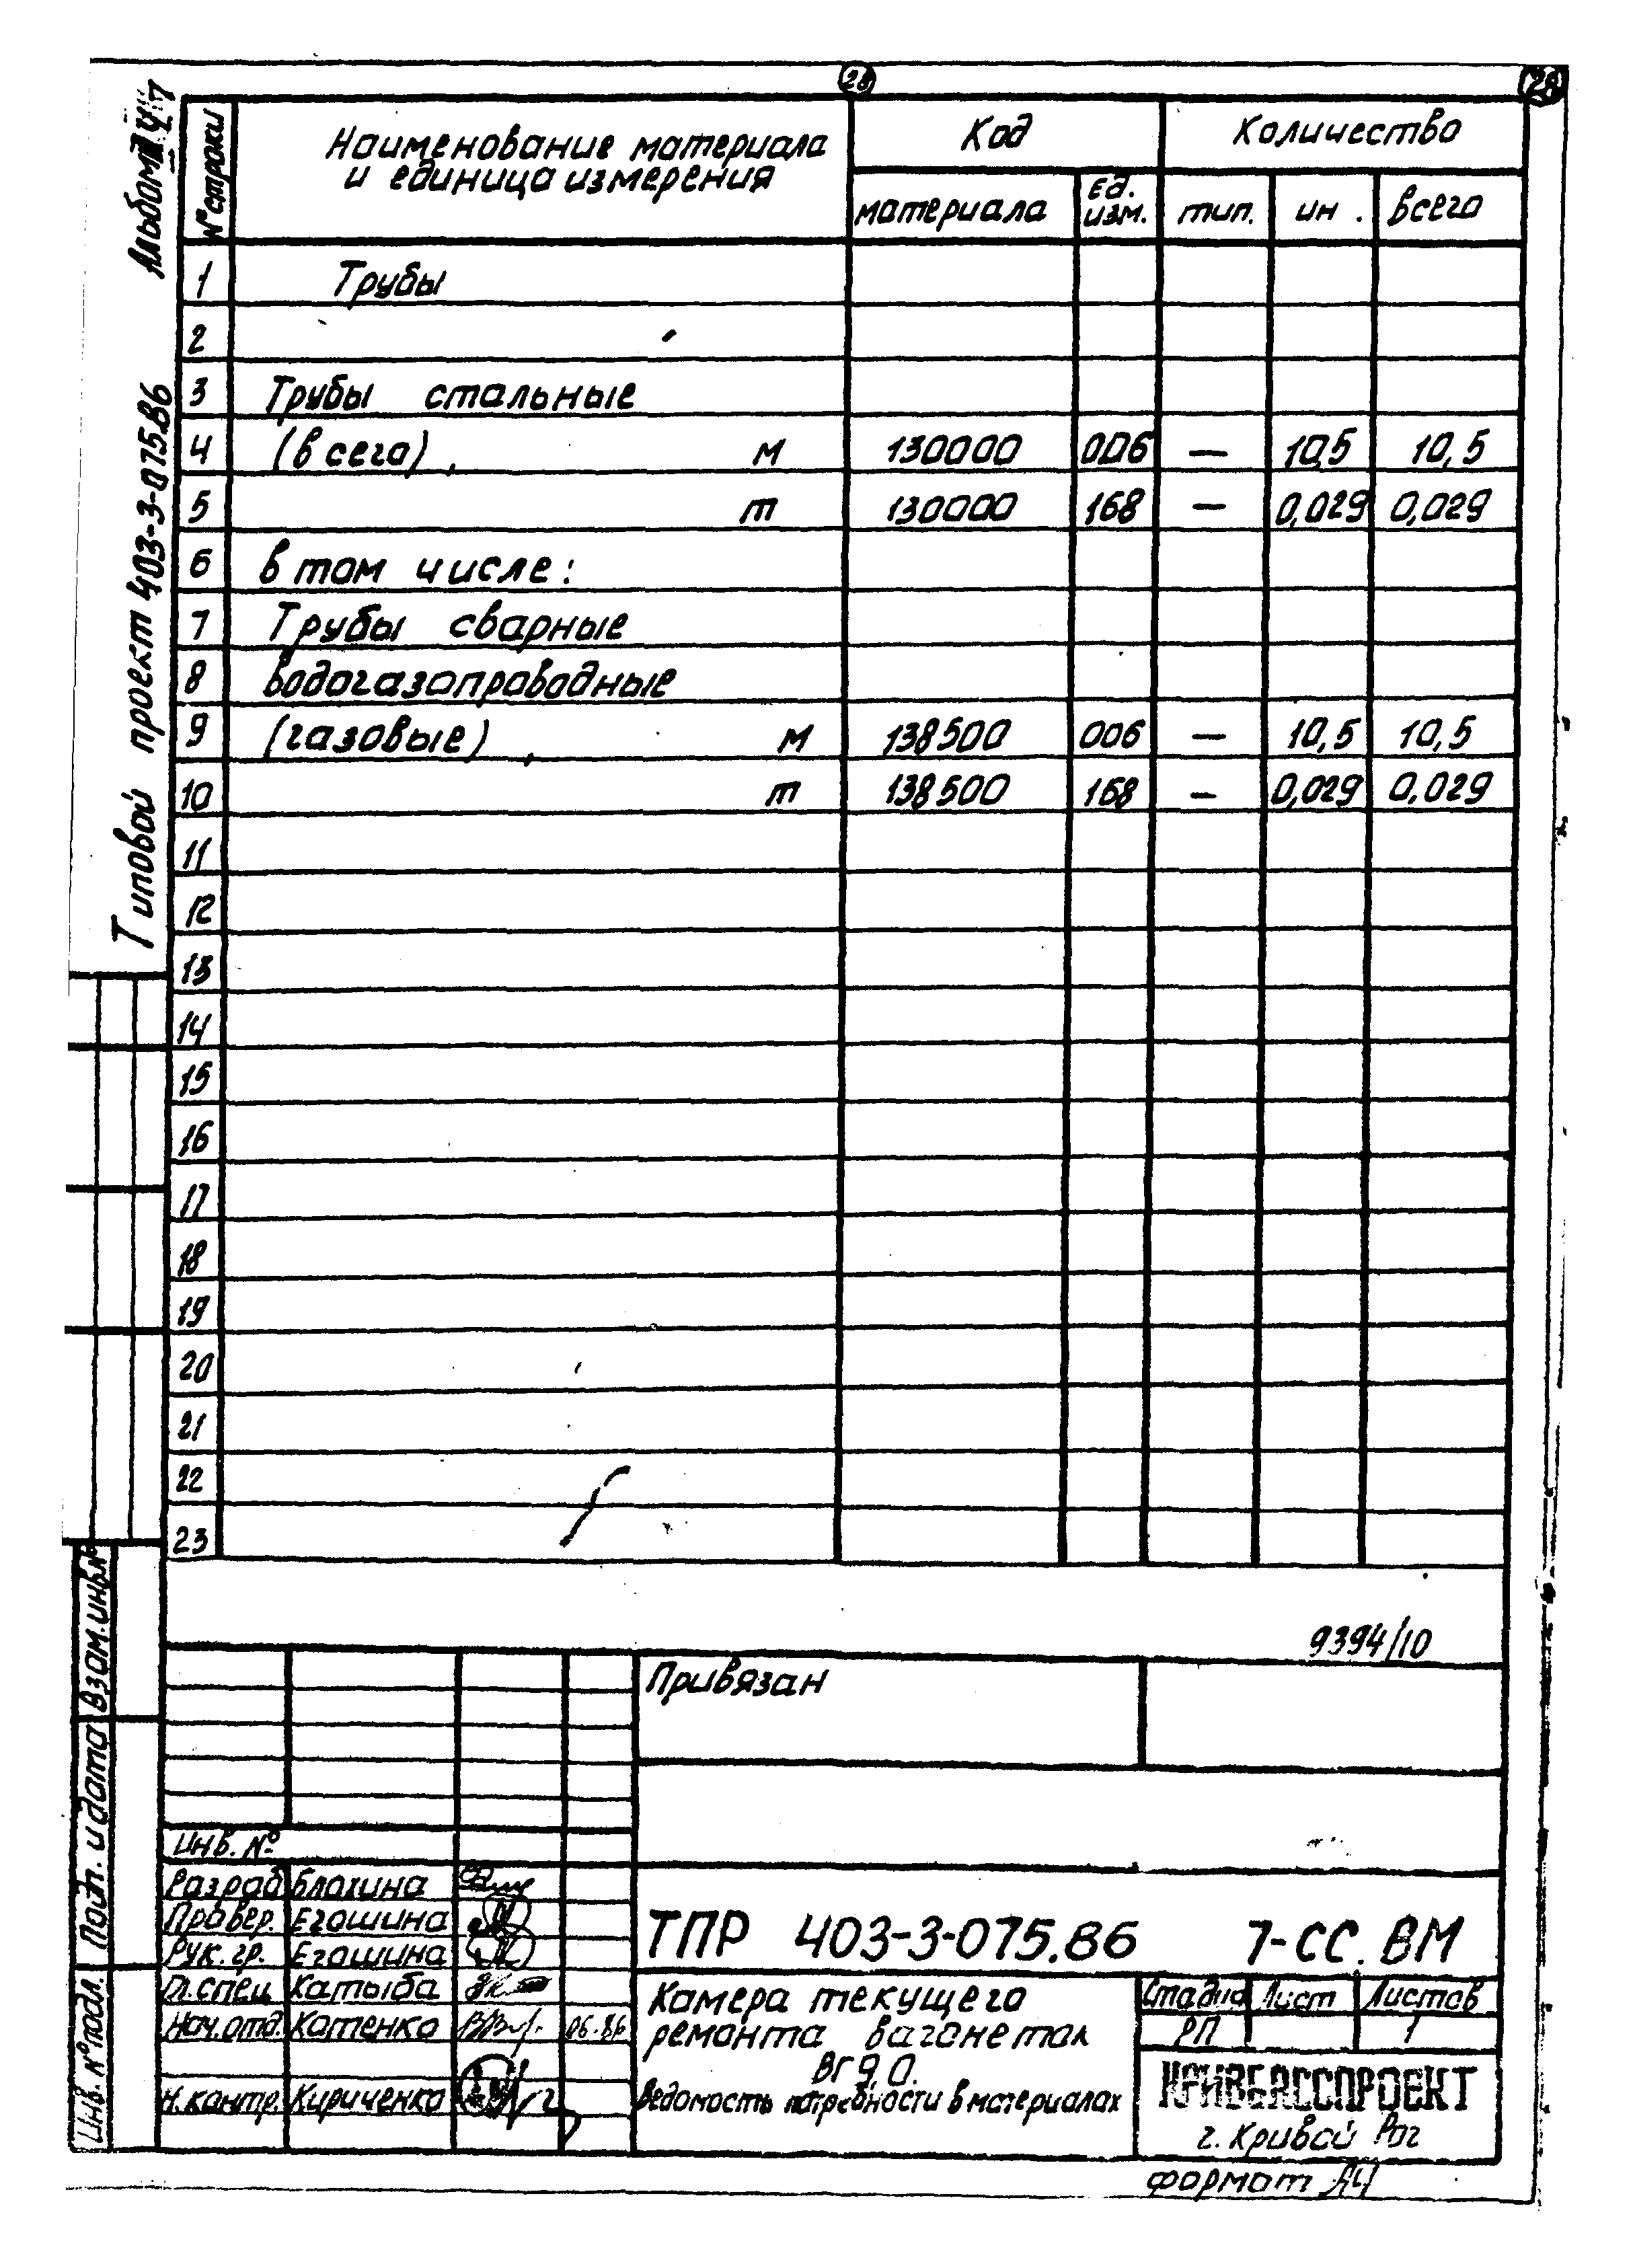 28
28
Типовой проект 403-3-075.86
Альбом
№ строки
Наименование материала
и единица измерения
Код
Количество
материала
Ед.
изм.
тип.
ин.
всего
1 Трубы
2
3 Трубы стальные
4 (всего), м 130000 006 — 10,5 10,5
5 т 130000 168 — 0,029 0,029
6 в том числе:
7 Трубы сварные
8 водогазопроводные
9 (газовые), м 138500 006 — 10,5 10,5
10 т 138500 168 — 0,029 0,029
11
12
13
14
15
16
17
18
19
20
21
22
23
9394/10
Привязан
Инв. №
Разраб. Блохина
Провер. Егошина
Рук. гр. Егошина
Гл. спец Катыба
Нач. отд. Катенко 06.86
Н. контр. Кириченко
ТПР 403-3-075.86 7-СС. ВМ
Камера текущего
ремонта вагонеток
ВГ9,0.
Ведомость потребности в материалах
Стадия Лист Листов
РП 1
КРИВБАССПРОЕКТ
г. Кривой Рог
Формат А4
Взам. инв. №
Подп. и дата
Инв. № подл.